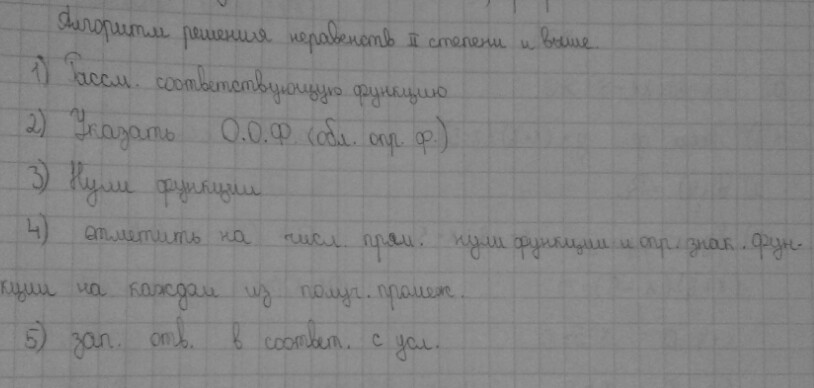 Алгоритм решения неравенств II степени и выше.
1) Рассм. соответствующую функцию
2) Указать О.О.Ф. (обл. опр. ф.)
3) Нули функции
4) отметить на числ. прям. нули функции и опр. знак. фун-
кции на каждом из получ. промеж.
5) зап. отв. в соответ. с усл.